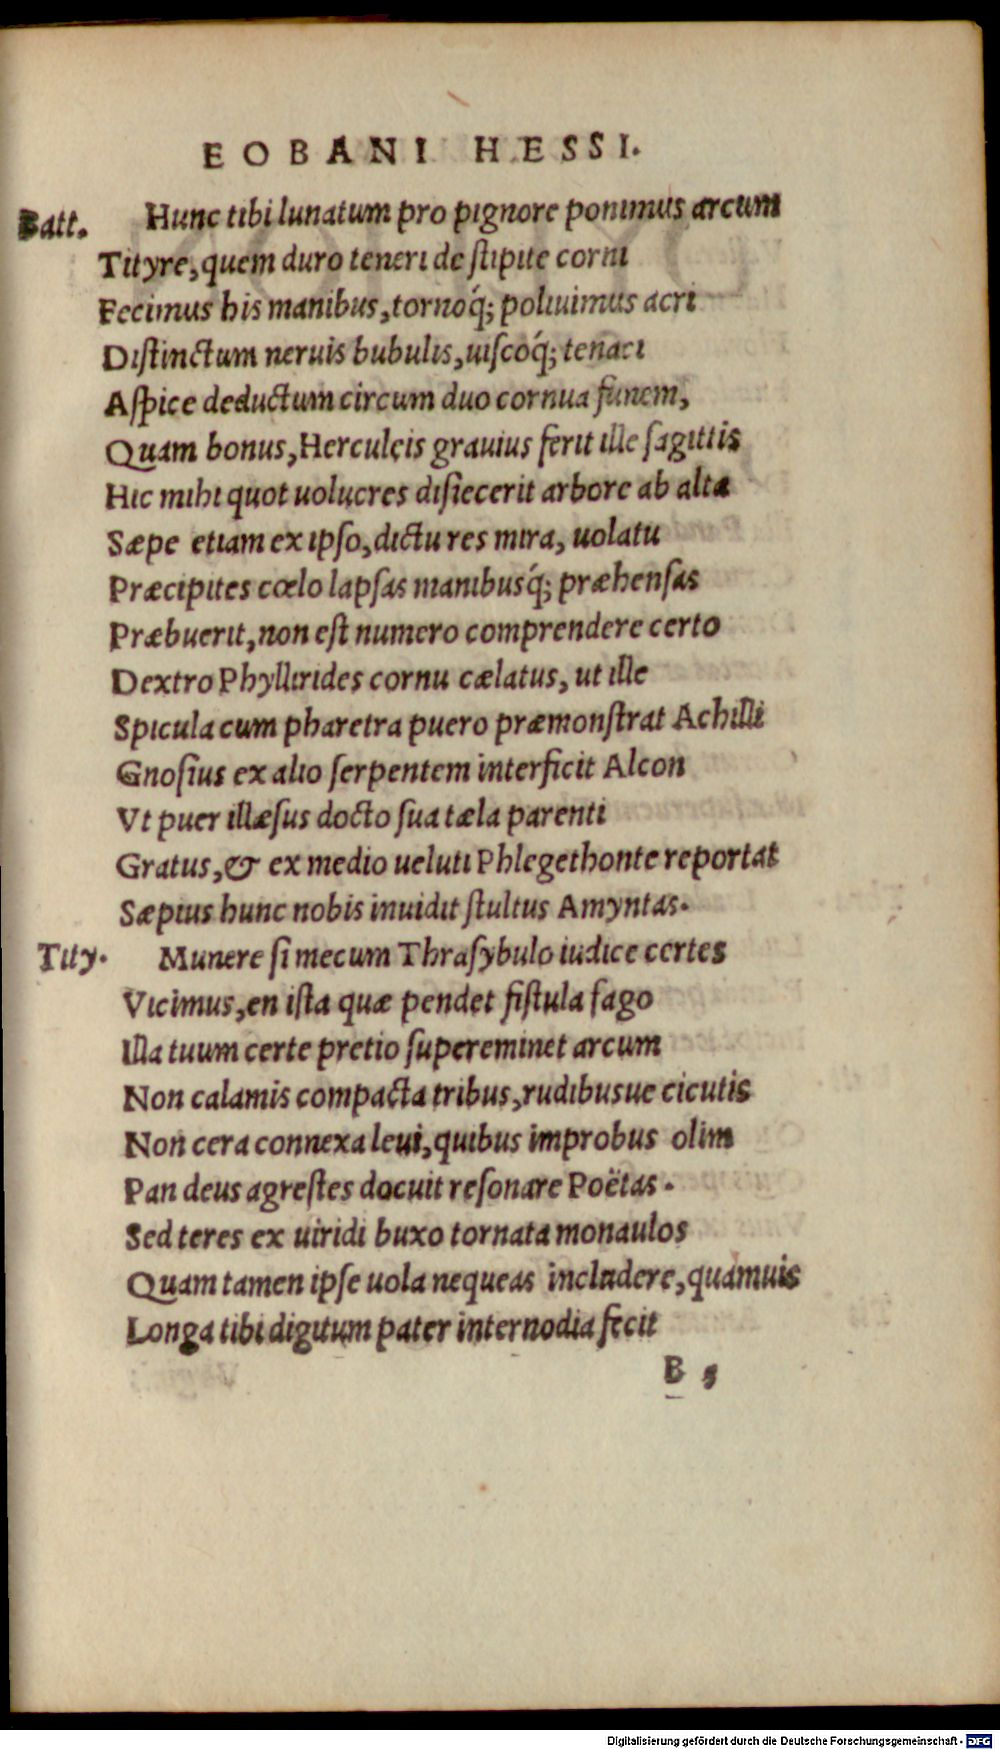 EOBANI HESSI.
Batt. Hunc tibi lunatum pro pignore ponimus arcum
Tityre, quem duro teneri de ſtipite corni
Fecimus his manibus, tornoq́; poliuimus acri
Diſtinctum neruis bubulis, uiſcoq́; tenaci
Aſpice deductum circum duo cornua funem,
Quam bonus, Herculeis grauius ferit ille ſagittis
Hic mihi quot uolucres diſiecerit arbore ab alta
Sæpe etiam ex ipſo, dictu res mira, uolatu
Præcipites cœlo lapſas manibusq́; præhenſas
Præbuerit, non eſt numero comprendere certo
Dextro Phyllirides cornu cælatus, ut ille
Spicula cum pharetra puero præmonſtrat Achilli
Gnoſius ex alio ſerpentem interficit Alcon
Vt puer illæſus docto ſua tæla parenti
Gratus, & ex medio ueluti Phlegethonte reportat
Sæpius hunc nobis inuidit ſtultus Amyntas.
Tity. Munere ſi mecum Thraſybulo iudice certes
Vicimus, en iſta quæ pendet fiſtula fago
Illa tuum certe pretio ſupereminet arcum
Non calamis compacta tribus, rudibusue cicutis
Non cera connexa leui, quibus improbus olim
Pan deus agreſtes docuit reſonare Poëtas.
Sed teres ex uiridi buxo tornata monaulos
Quam tamen ipſe uola nequeas includere, quamuis
Longa tibi digitum pater internodia fecit
B 5
Digitalisierung gefördert durch die Deutsche Forschungsgemeinschaft - DFG